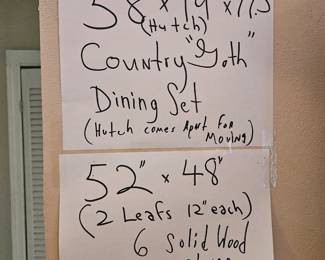 58 x 19 x 77.5
(Hutch)
Country "Goth"
Dining Set
(Hutch comes Apart For
Moving)
52" x 48"
(2 Leafs 12" each)
6 Solid Wood